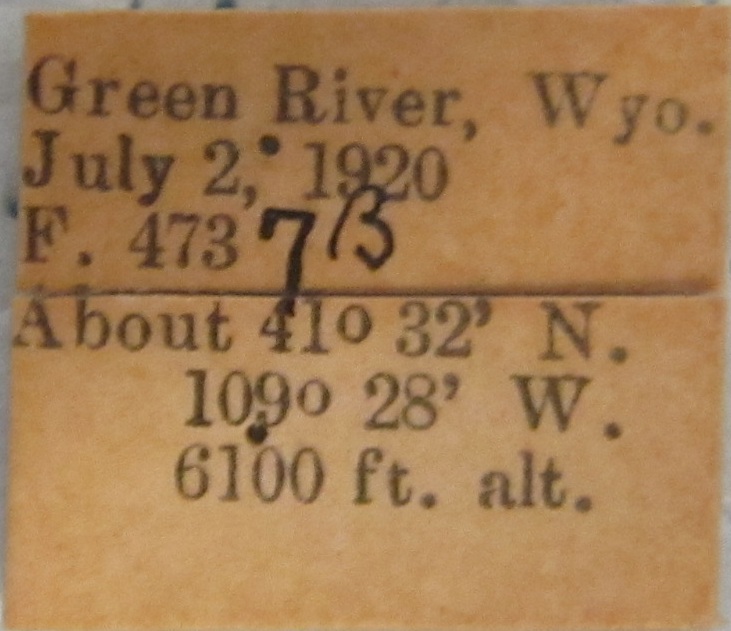 Green River, Wyo.
July 2, 1920
F. 4737B
About 41o 32' N.
109o 28' W.
6100 ft. alt.